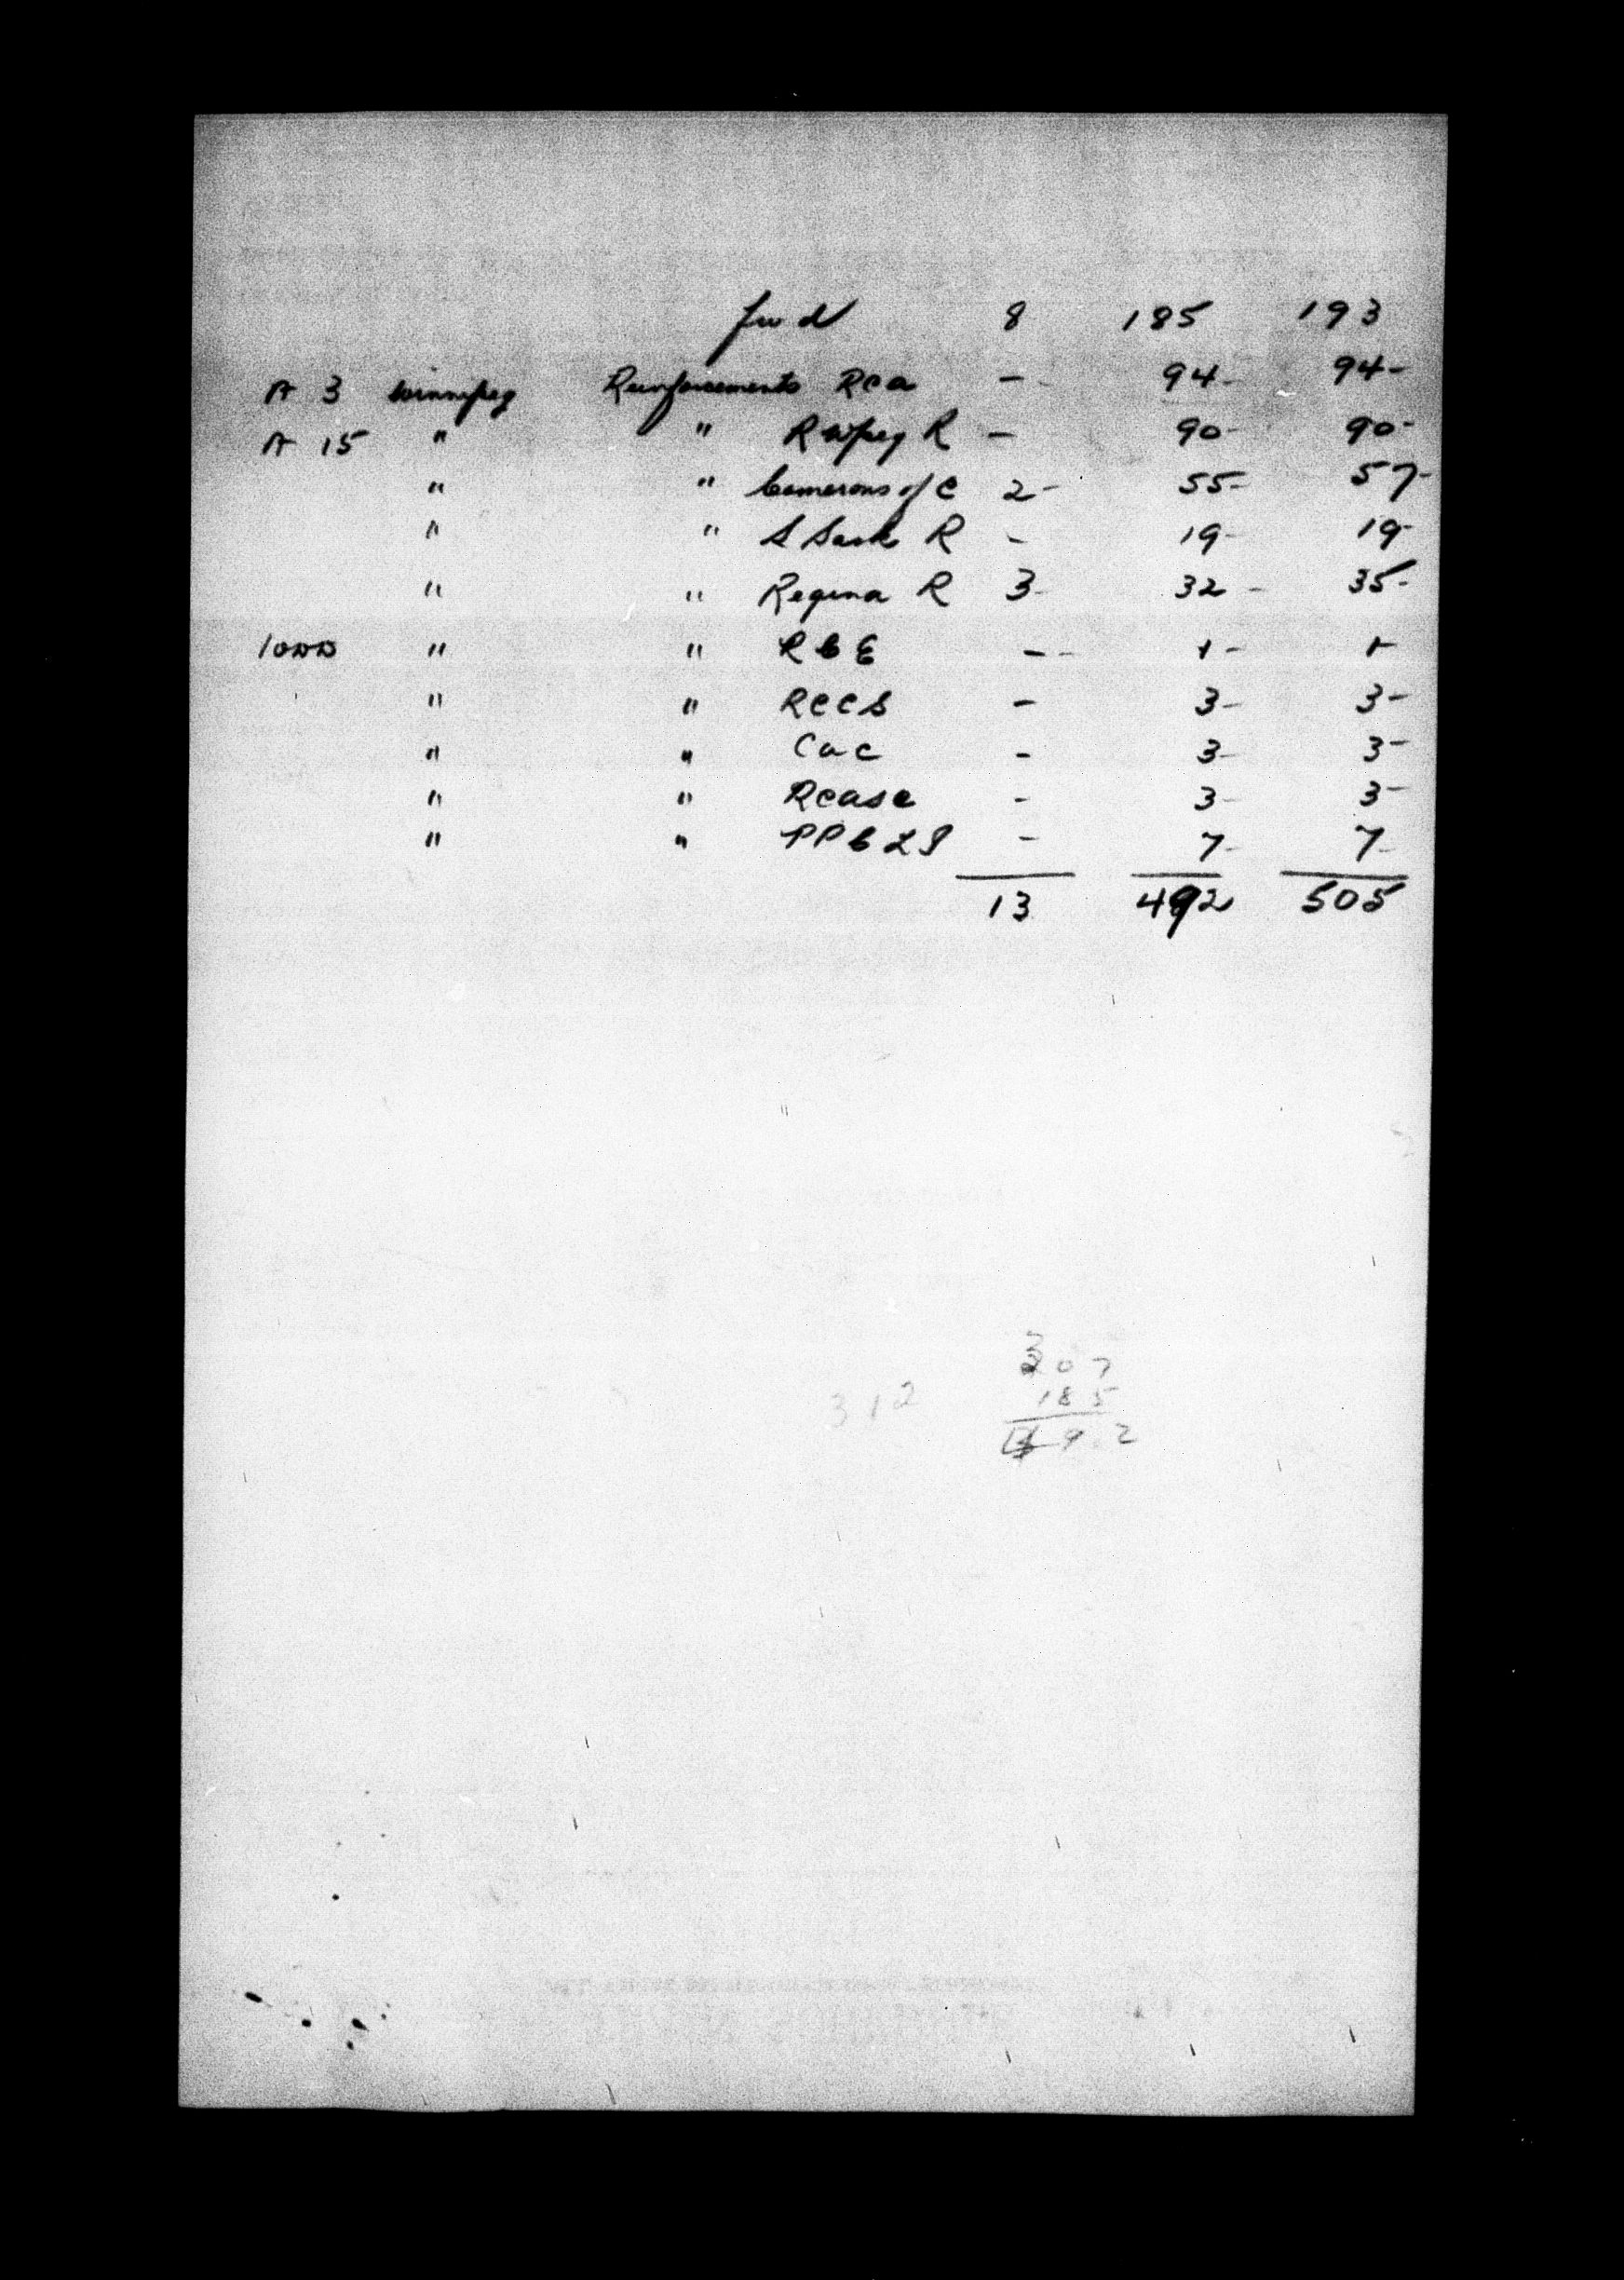 fwd 8 185 193
A 3 Winnipeg Reinforcements RCA - 94- 94-
A 15 " " R Wpeg R - 90- 90-
" " Camerons of C 2- 55- 57-
" " S Sask R - 19- 19-
" " Regina R 3- 32- 35-
10DD " " RCE -- 1- 1-
" " RCCS - 3- 3-
" " CAC - 3- 3-
" " RCASC - 3- 3-
" " PPCLI - 7- 7-
13 492 505
307
312 185
492